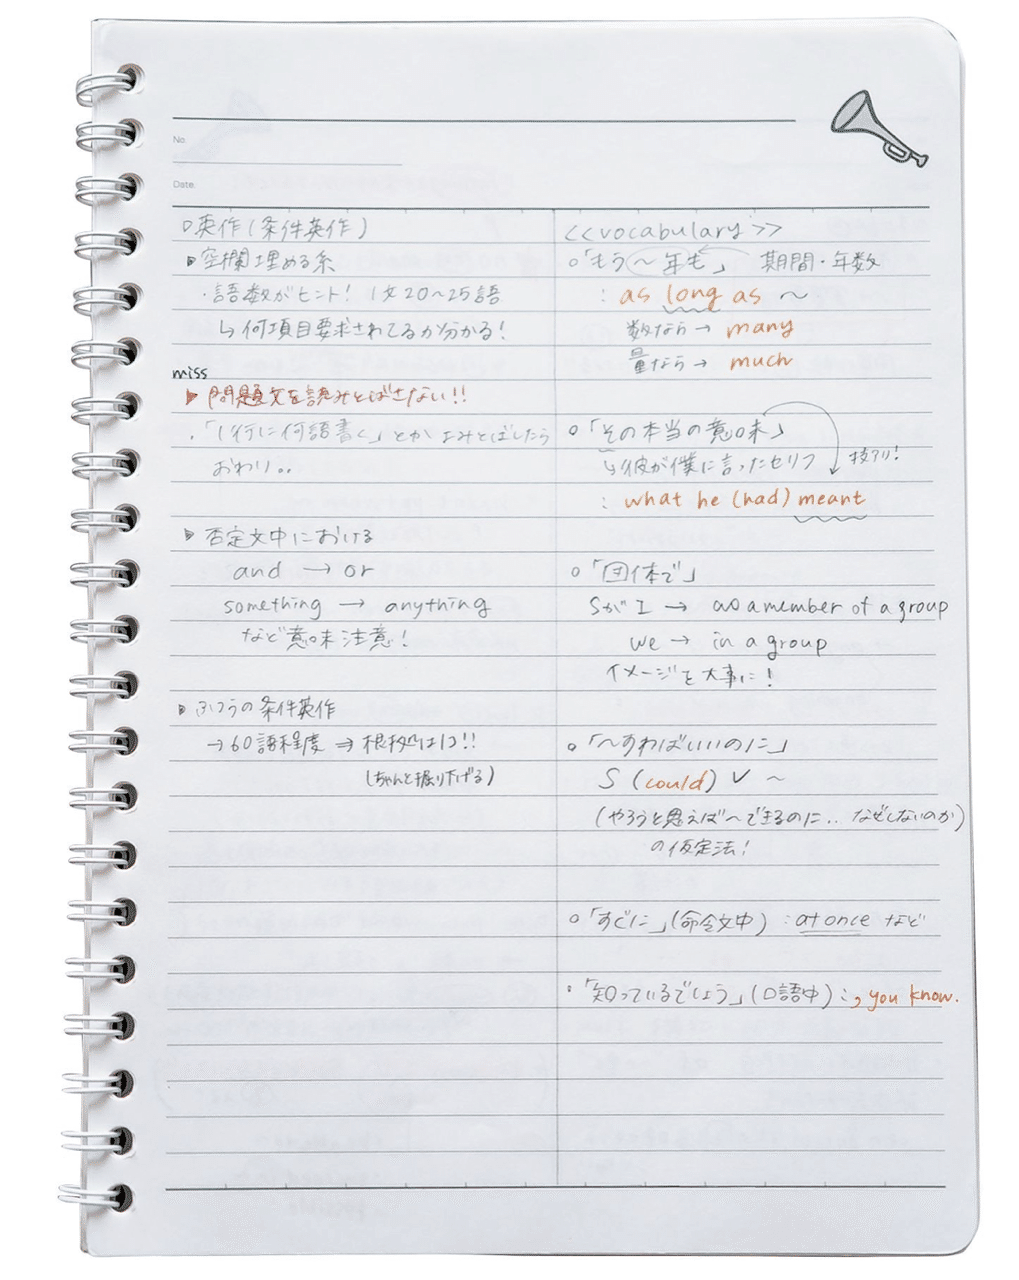 No.
Date.
□英作(条件英作)
▶空欄埋める系
・語数がヒント! 1文20〜25語
↳何項目要求されてるか分かる!
miss
▶問題文を読みとばさない!!
・「1行に何語書く」とか よみとばしたら
おわり..
▶否定文中における
and → or
something → anything
など意味注意!
▶ふつうの条件英作
→60語程度 ⇒ 根拠は1コ!!
(ちゃんと掘り下げる)
<<vocabulary>>
○「もう〜年も」 期間・年数
: as long as 〜
数なら→ many
量なら→ much
○「その本当の意味」
↳彼が僕に言ったセリフ 技アリ!
: what he (had) meant
○「団体で」
SがI → as a member of a group
we → in a group
イメージを大事に!
○「〜すればいいのに」
S (could) V 〜
(やろうと思えば〜できるのに.. なぜしないのか)
の仮定法!
○「すぐに」(命令文中) : at once など
・「知っているでしょう」(口語中) : , you know.